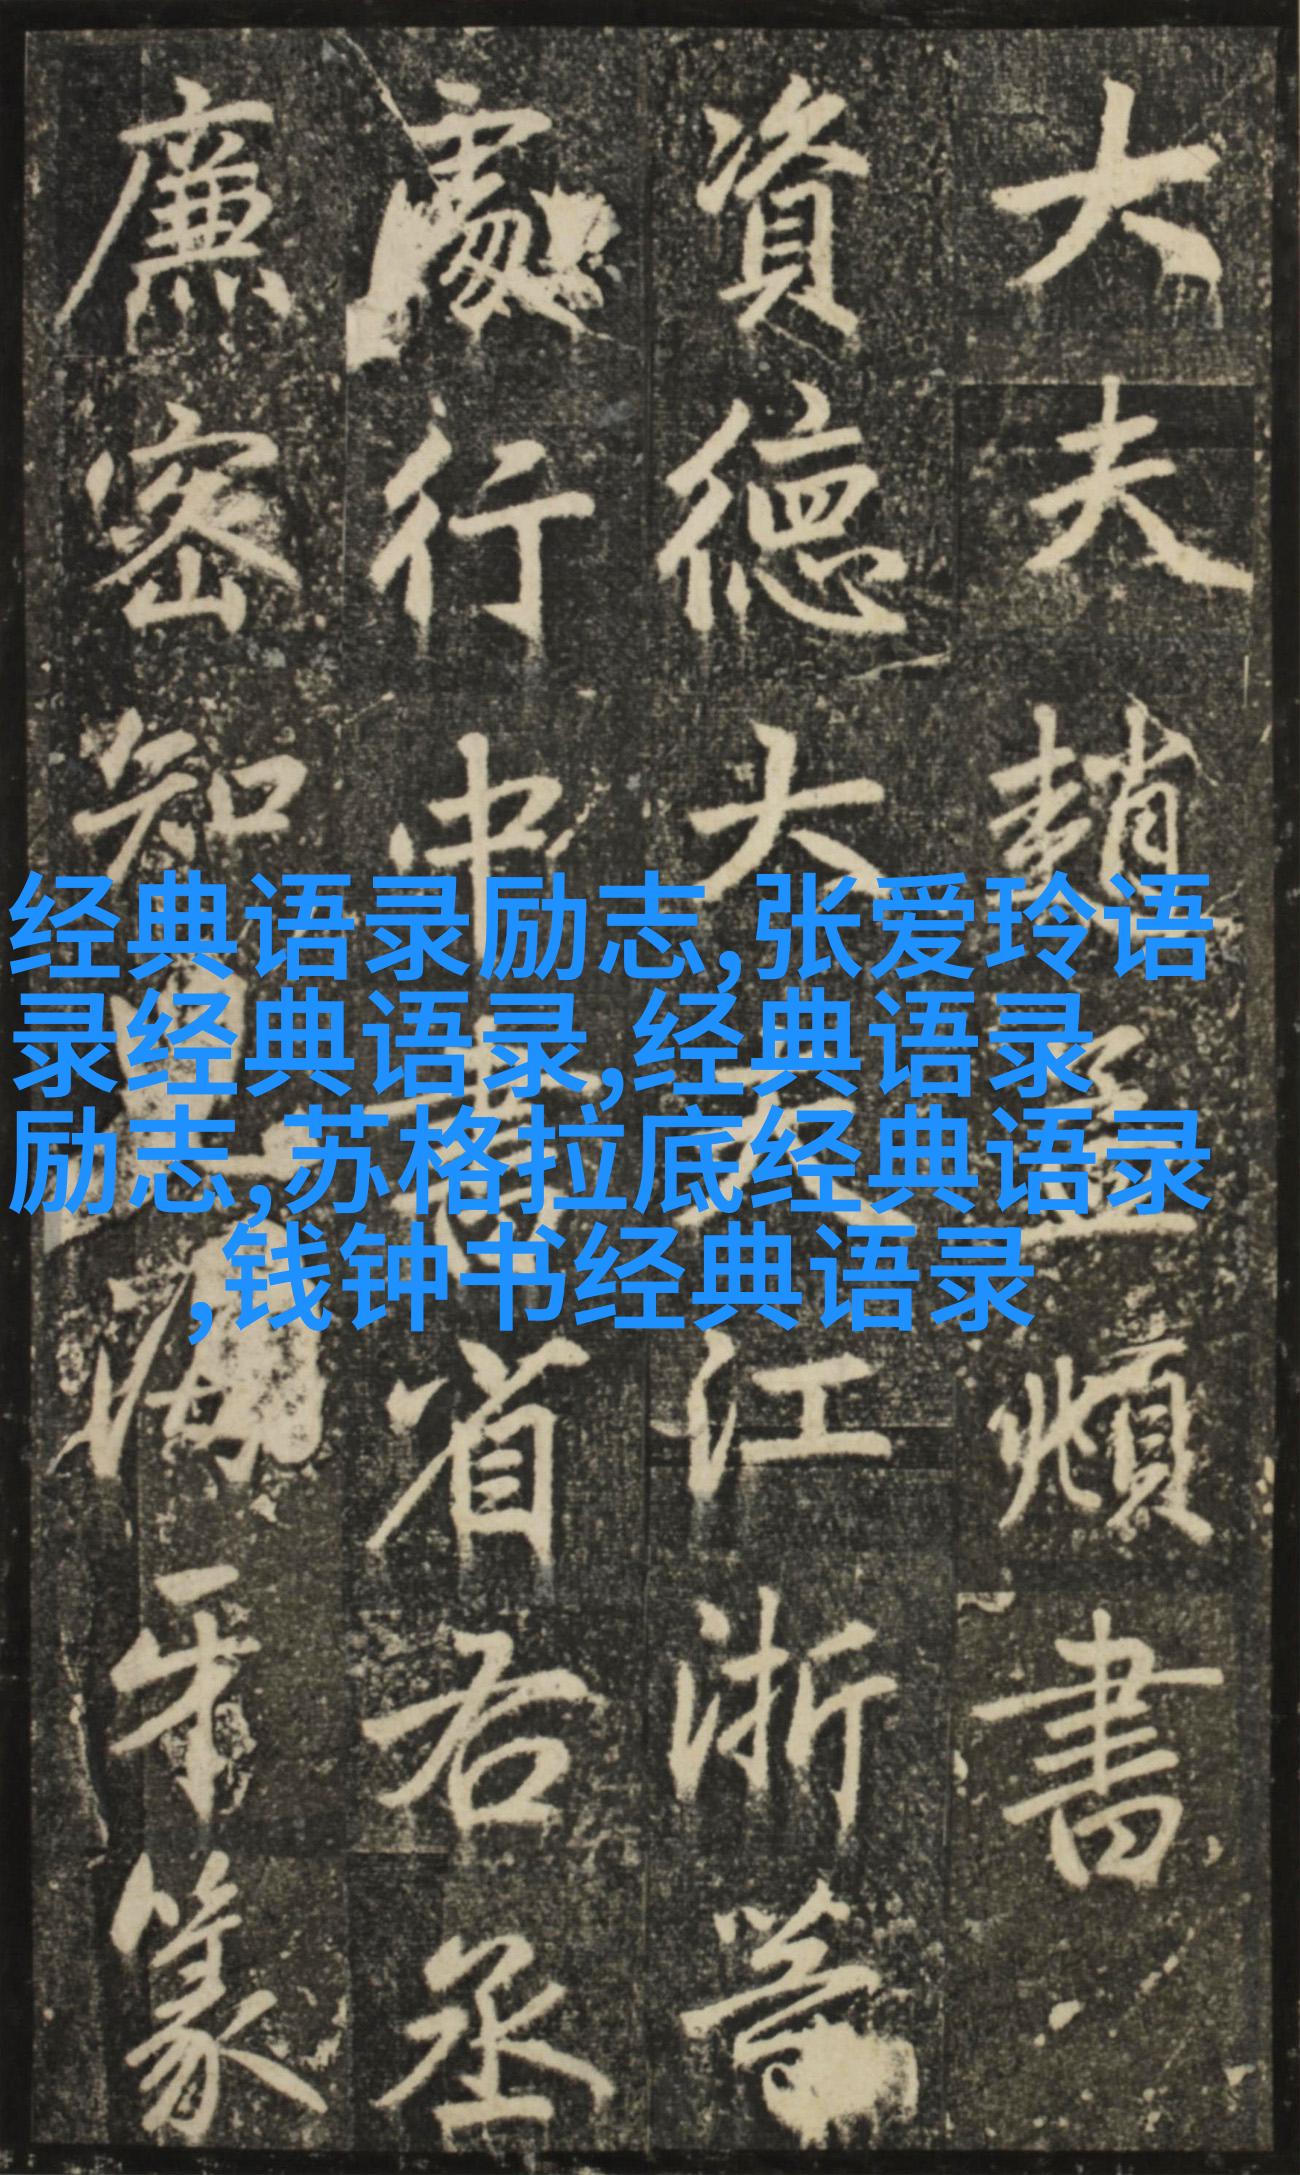 大夫趙孟頫書
資德大夫江浙等
處行中書省右丞
廉密知海牙篆
经典语录励志,张爱玲语
录经典语录,经典语录
励志,苏格拉底经典语录
,钱钟书经典语录